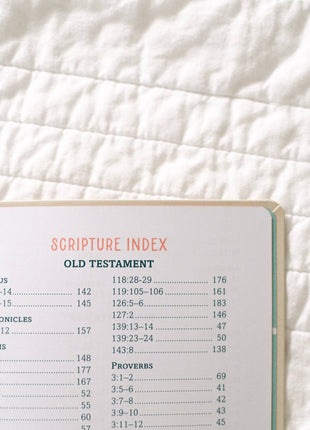 SCRIPTURE INDEX
OLD TESTAMENT
US
–14 142
–15 145
ONICLES
12 157
MS
148
177
167
52
55
57
60
118:28–29 176
119:105–106 161
126:5–6 183
127:2 146
139:13–14 47
139:23–24 50
143:8 138
PROVERBS
3:1–2 69
3:5–6 41
3:7–8 42
3:9–10 43
3:11–12 45